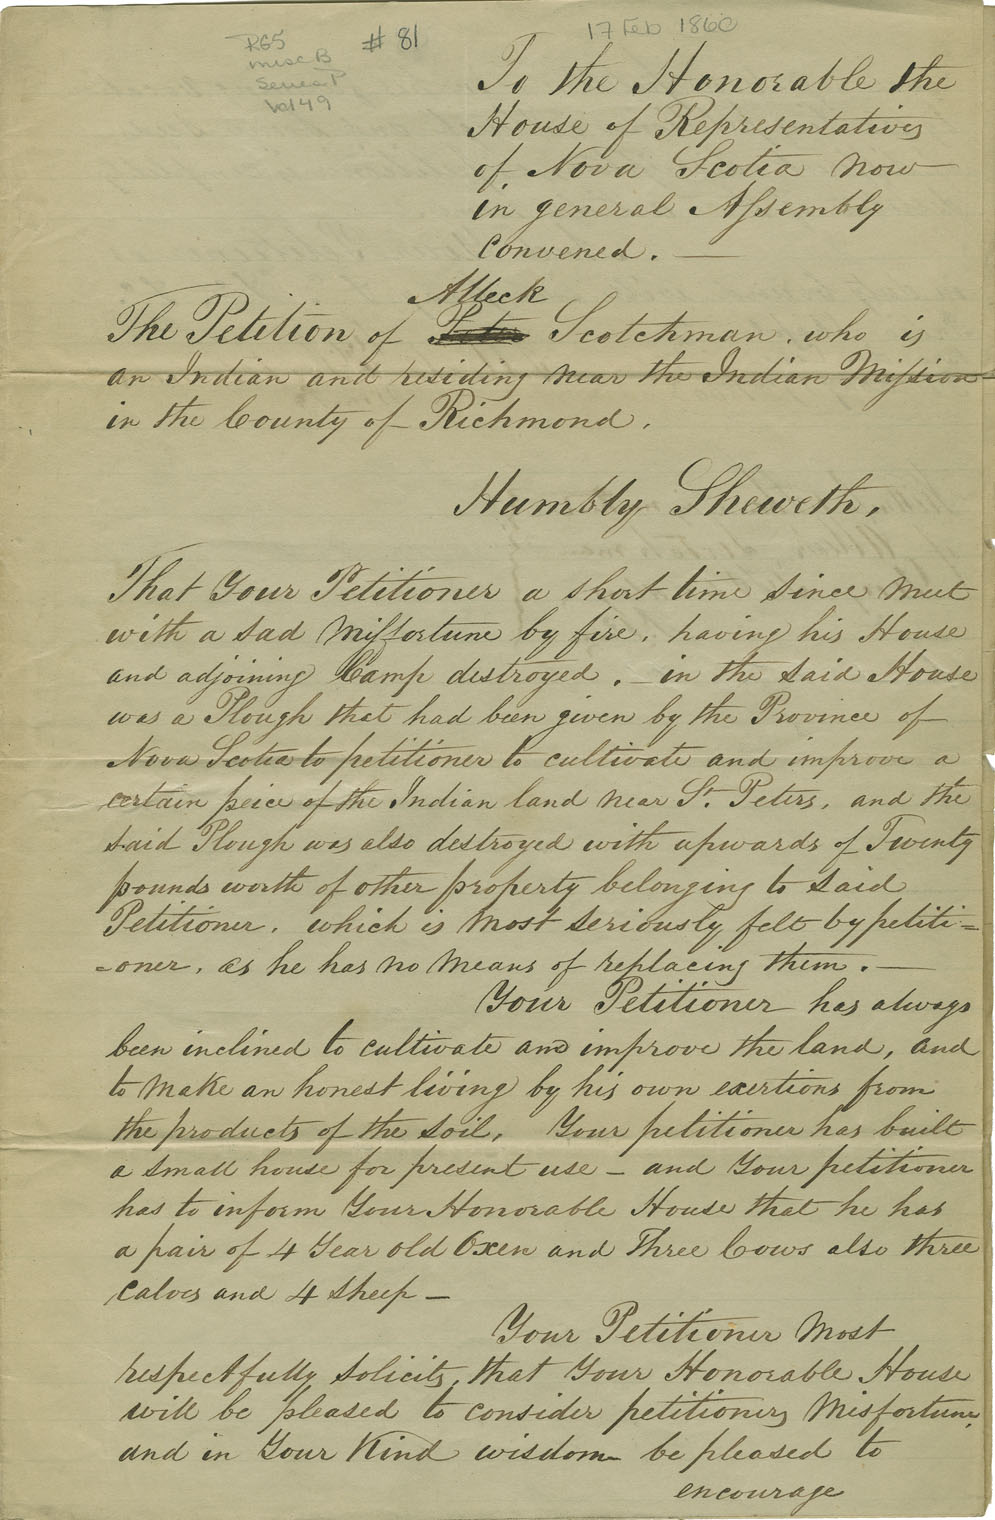 RG5
misc B
Series P
Vol 49
# 81
17 Feb 1860
To the Honorable the
House of Representatives
of Nova Scotia now
in general Assembly
convened. —
Alleck
The Petition of Peter Scotchman. who is
an Indian and residing near the Indian Mission
in the County of Richmond.
Humbly Sheweth,
That Your Petitioner a short time since Meet
with a sad Misfortune by fire, having his House
and adjoining Camp destroyed. — in the said House
was a Plough that had been given by the Province of
Nova Scotia to petitioner to cultivate and improve a
certain peice of the Indian land near St. Peters, and the
said Plough was also destroyed with upwards of Twenty
pounds worth of other property belonging to said
Petitioner. which is Most seriously felt by petiti=
-oner, as he has no Means of replacing them. —
Your Petitioner has always
been inclined to cultivate and improve the land, and
to Make an honest living by his own exertions from
the products of the soil, Your petitioner has built
a small house for present use — and Your petitioner
has to inform Your Honorable House that he has
a pair of 4 Year old Oxen and Three Cows also three
Calves and 4 sheep —
Your Petitioner Most
respectfully solicits, that Your Honorable House
will be pleased to consider petitioners Misfortune,
and in Your Kind wisdom be pleased to
encourage